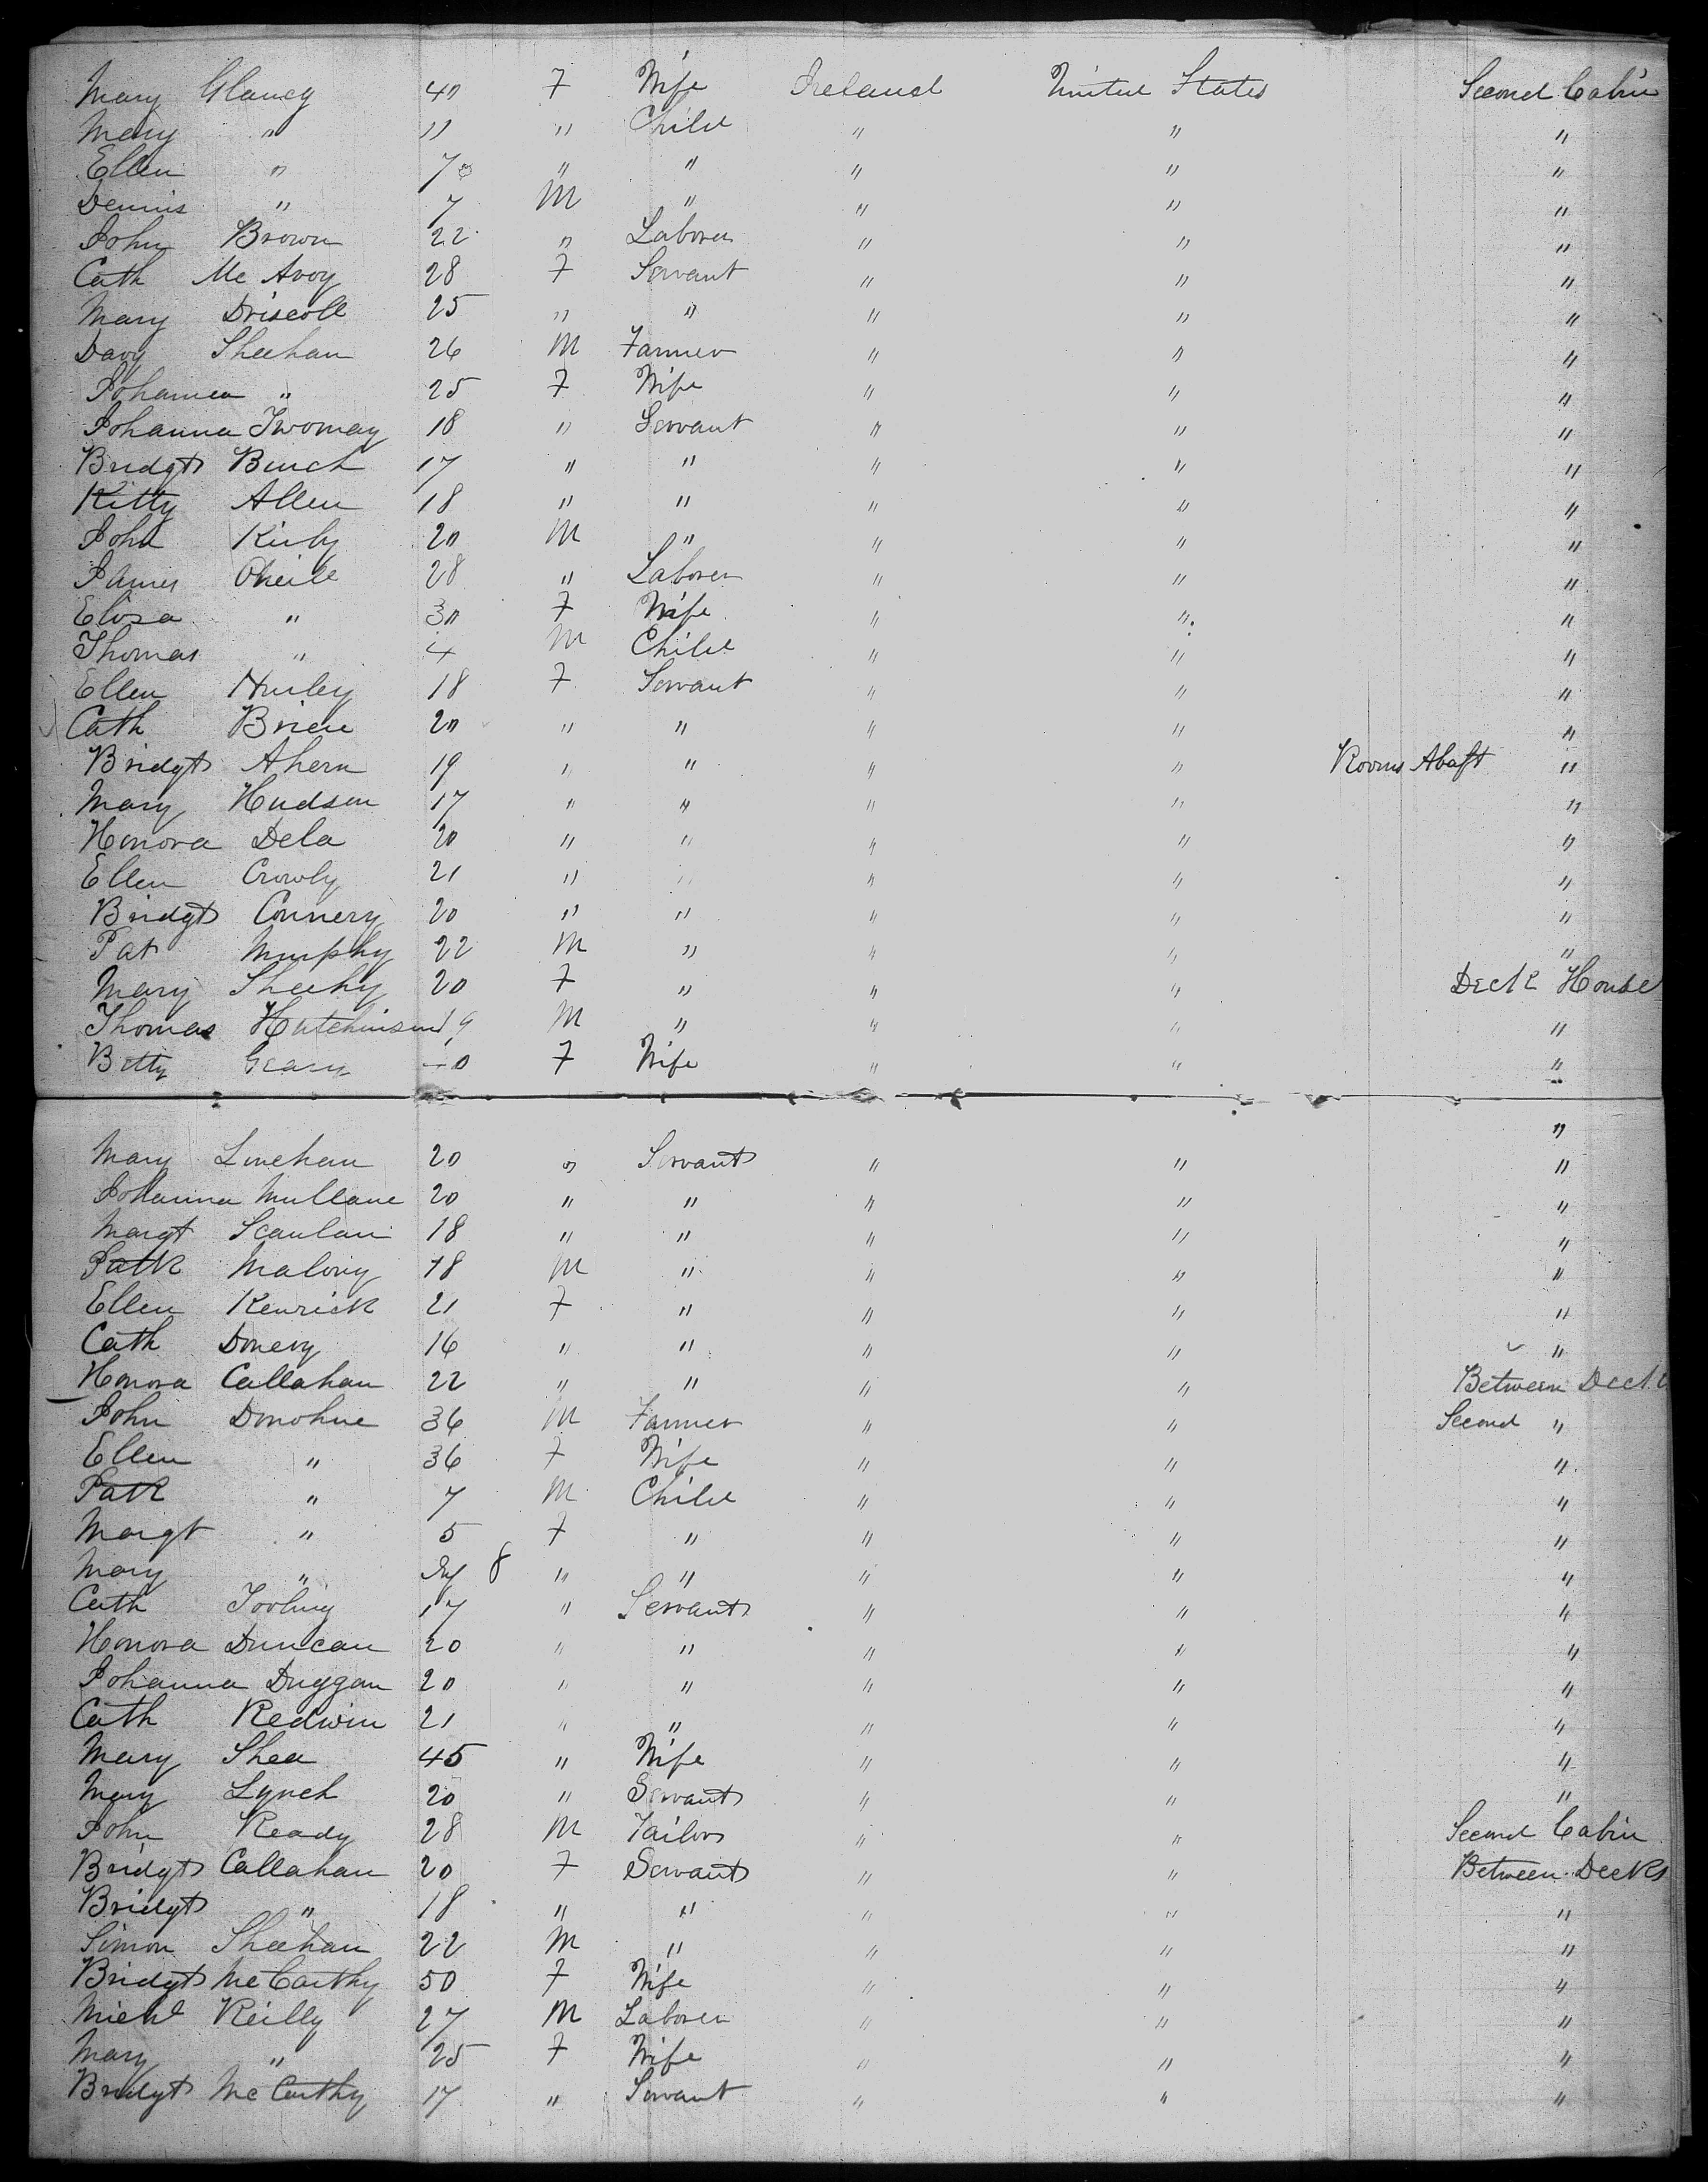 Mary Glancy 40 F Wife Ireland United States Second Cabin
Mary " 11 " Child " " "
Ellen " 7 " " " " "
Dennis " 7 M " " " "
John Brown 22 " Laborer " " "
Cath Mc Avoy 28 F Servant " " "
Mary Driscoll 25 " " " " "
Davy Sheehan 26 M Farmer " " "
Johanna " 25 F Wife " " "
Johanna Twomay 18 " Servant " " "
Bridgt 17 " " " " "
Kitty Allen 18 " " " " "
John Kirby 20 M " " " "
James Oneile 28 " Laborer " " "
Eliza " 30 F Wife " " "
Thomas " 4 M Child " " "
Ellen Hurley 18 F Servant " " "
Cath Brien 20 " " " " "
Bridgt Ahern 19 " " " " Rooms Abaft "
Mary Hudson 17 " " " " "
Honora Dela 20 " " " " "
Ellen Crowly 21 " " " " "
Bridgt Connery 20 " " " " "
Pat Murphy 22 M " " " "
Mary Sheehy 20 F " " " Deck House
Thomas Hutchinson 19 M " " " "
Betty Geary F Wife " " "
"
Mary Linehan 20 " Servant " " "
Johanna Mullane 20 " " " " "
Margt Scanlan 18 " " " " "
Patk Malony 18 M " " " "
Ellen Kenrick 21 F " " " "
Cath 16 " " " " "
Honora Callahan 22 " " " " Between Decks
John Donohue 36 M Farmer " " Second "
Ellen " 36 F Wife " " "
Patk " 7 M Child " " "
Margt " 5 F " " " "
Mary " 8 " " " " "
Cath 17 " Servant " " "
Honora Duncan 20 " " " " "
Johanna Duggan 20 " " " " "
Cath Redwin 21 " " " " "
Mary Shea 45 " Wife " " "
Mary Lynch 20 " Servant " " "
John Ready 28 M Tailor " " Second Cabin
Bridgt Callahan 20 F Servant " " Between Decks
Bridgt " 18 " " " " "
Simon Sheehan 22 M " " " "
Bridgt McCarthy 50 F Wife " " "
Michl Reilly 27 M Laborer " " "
Mary " 25 F Wife " " "
Bridgt McCarthy 17 " Servant " " "